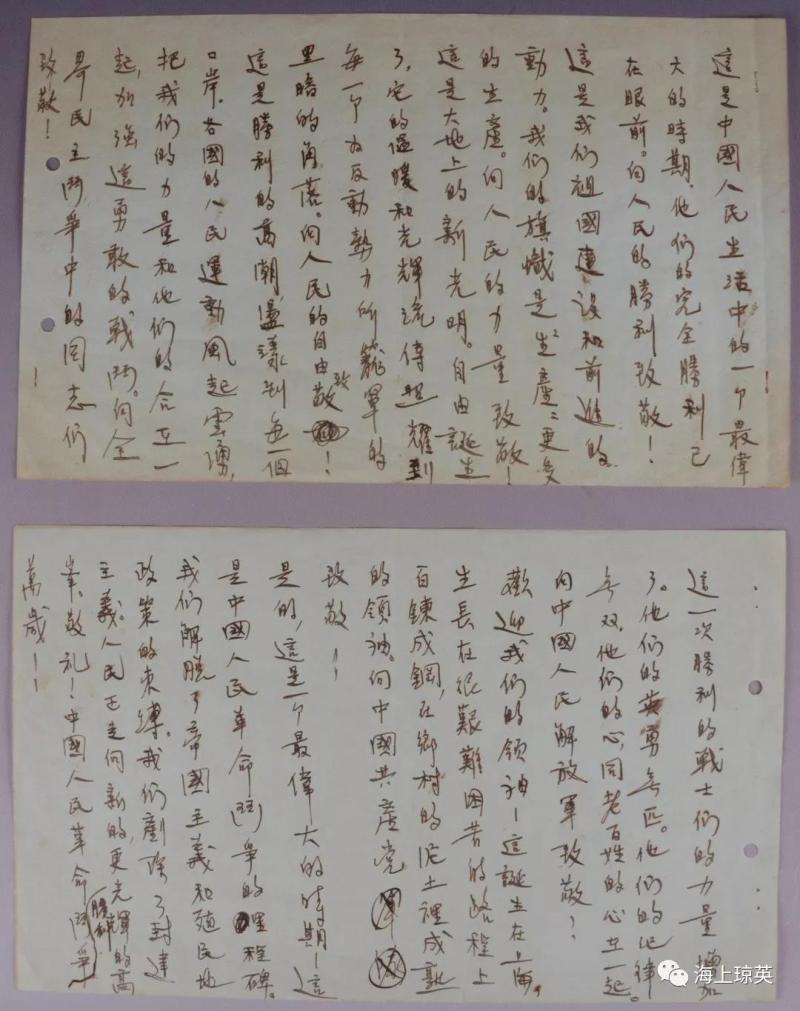 這是中國人民生活中的一个最偉
大的時期，他们的完全勝利已
在眼前。向人民的勝利致敬！
這是我们祖國建設和前進的
動力。我们的旗幟是“生產”：更多
的生產。向人民的力量致敬！
這是大地上的新光明。自由誕生
了，它的温暖和光輝流傳照耀到
每一个为反動勢力所籠罩的
黑暗的角落。向人民的自由致敬！
這是勝利的高潮，盪漾到每一個
口岸。各國的人民運動風起雲湧，
把我们的力量和他们的合在一
起，加强這勇敢的戰鬥。向全
界民主鬥爭中的同志们
致敬！
這一次勝利的戰士们的力量增加
了。他们的英勇無匹。他们的紀律
無双，他们的心同老百姓的心在一起。
向中國人民解放軍致敬！
歡迎我们的領袖—這誕生在上海，
生長在很艱難困苦的路程上
百鍊成鋼，在鄉村的泥土裡成熟
的領袖。向中國共產党
致敬！
是的，這是一个最偉大的時期—這
是中國人民革命鬥爭的里程碑。
我们解脱了帝國主義和殖民地
政策的束縛。我们剷除了封建
主義。人民正走向新的，更光輝的高
峯。敬礼！中國人民革命鬥爭勝利
萬歲！
海上琼英